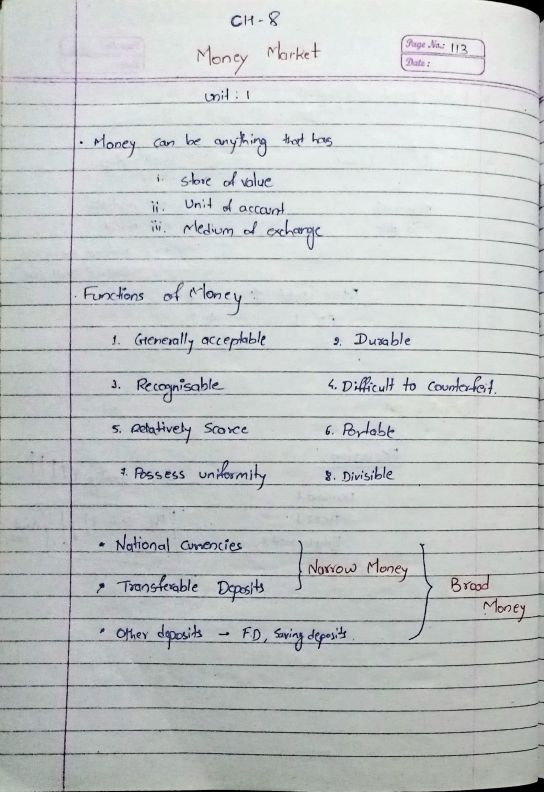 CH - 8
Money Market
Page No.: 113
Date :
Unit : 1
• Money can be anything that has
i. store of value
ii. Unit of account
iii. Medium of exchange
• Functions of Money :
1. Generally acceptable 2. Durable
3. Recognisable 4. Difficult to counterfeit.
5. Relatively Scarce 6. Portable
7. Possess uniformity 8. Divisible
• National Currencies
• Transferable Deposits
Narrow Money
Broad Money
• Other deposits → FD, Saving deposits.